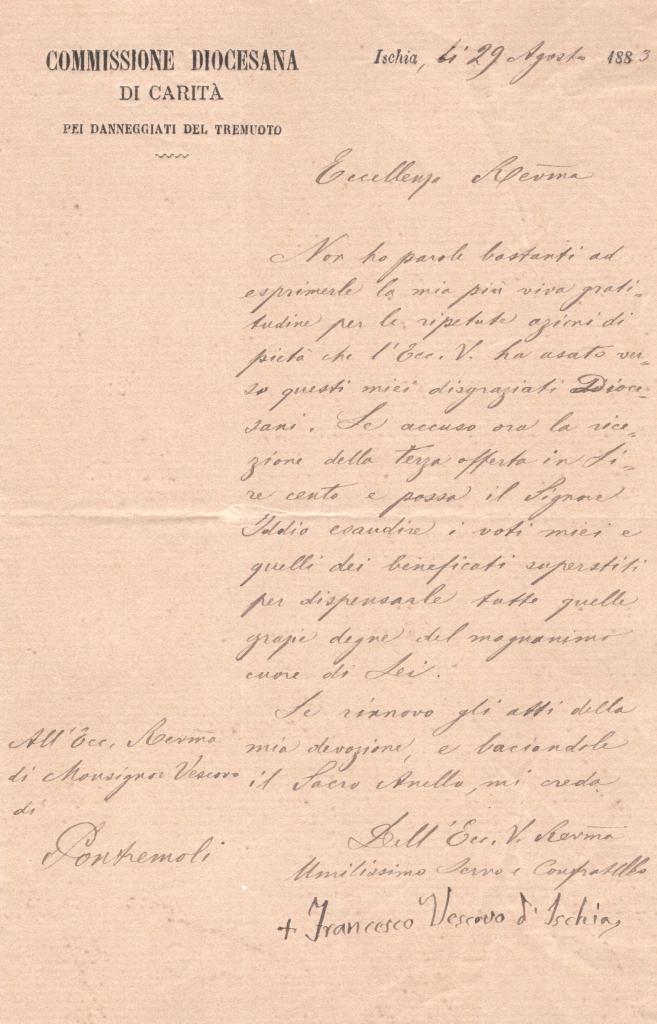 COMMISSIONE DIOCESANA
DI CARITÀ
PEI DANNEGGIATI DEL TREMUOTO
Ischia, li 29 Agosto 1883
Eccellenza Rev̅ma
Non ho parole bastanti ad
esprimerle la mia più viva grati-
tudine per le ripetute azioni di
pietà che l'Ecc. V. ha usato ver-
so questi miei disgraziati Dioce-
sani. Le accuso ora la rice-
zione della terza offerta in Li-
re cento e possa il Signore
Iddio esaudire i voti miei e
quelli dei beneficati superstiti
per dispensarle tutte quelle
grazie degne del magnanimo
cuore di Lei.
Le rinnovo gli atti della
mia devozione, e baciandole
il Sacro Anello, mi creda
Dell'Ecc. V. Rev̅ma
Umilissimo Servo e Confratello
+ Francesco Vescovo d'Ischia
All'Ecc. Rev̅ma
di Monsignor Vescovo
di
Pontremoli